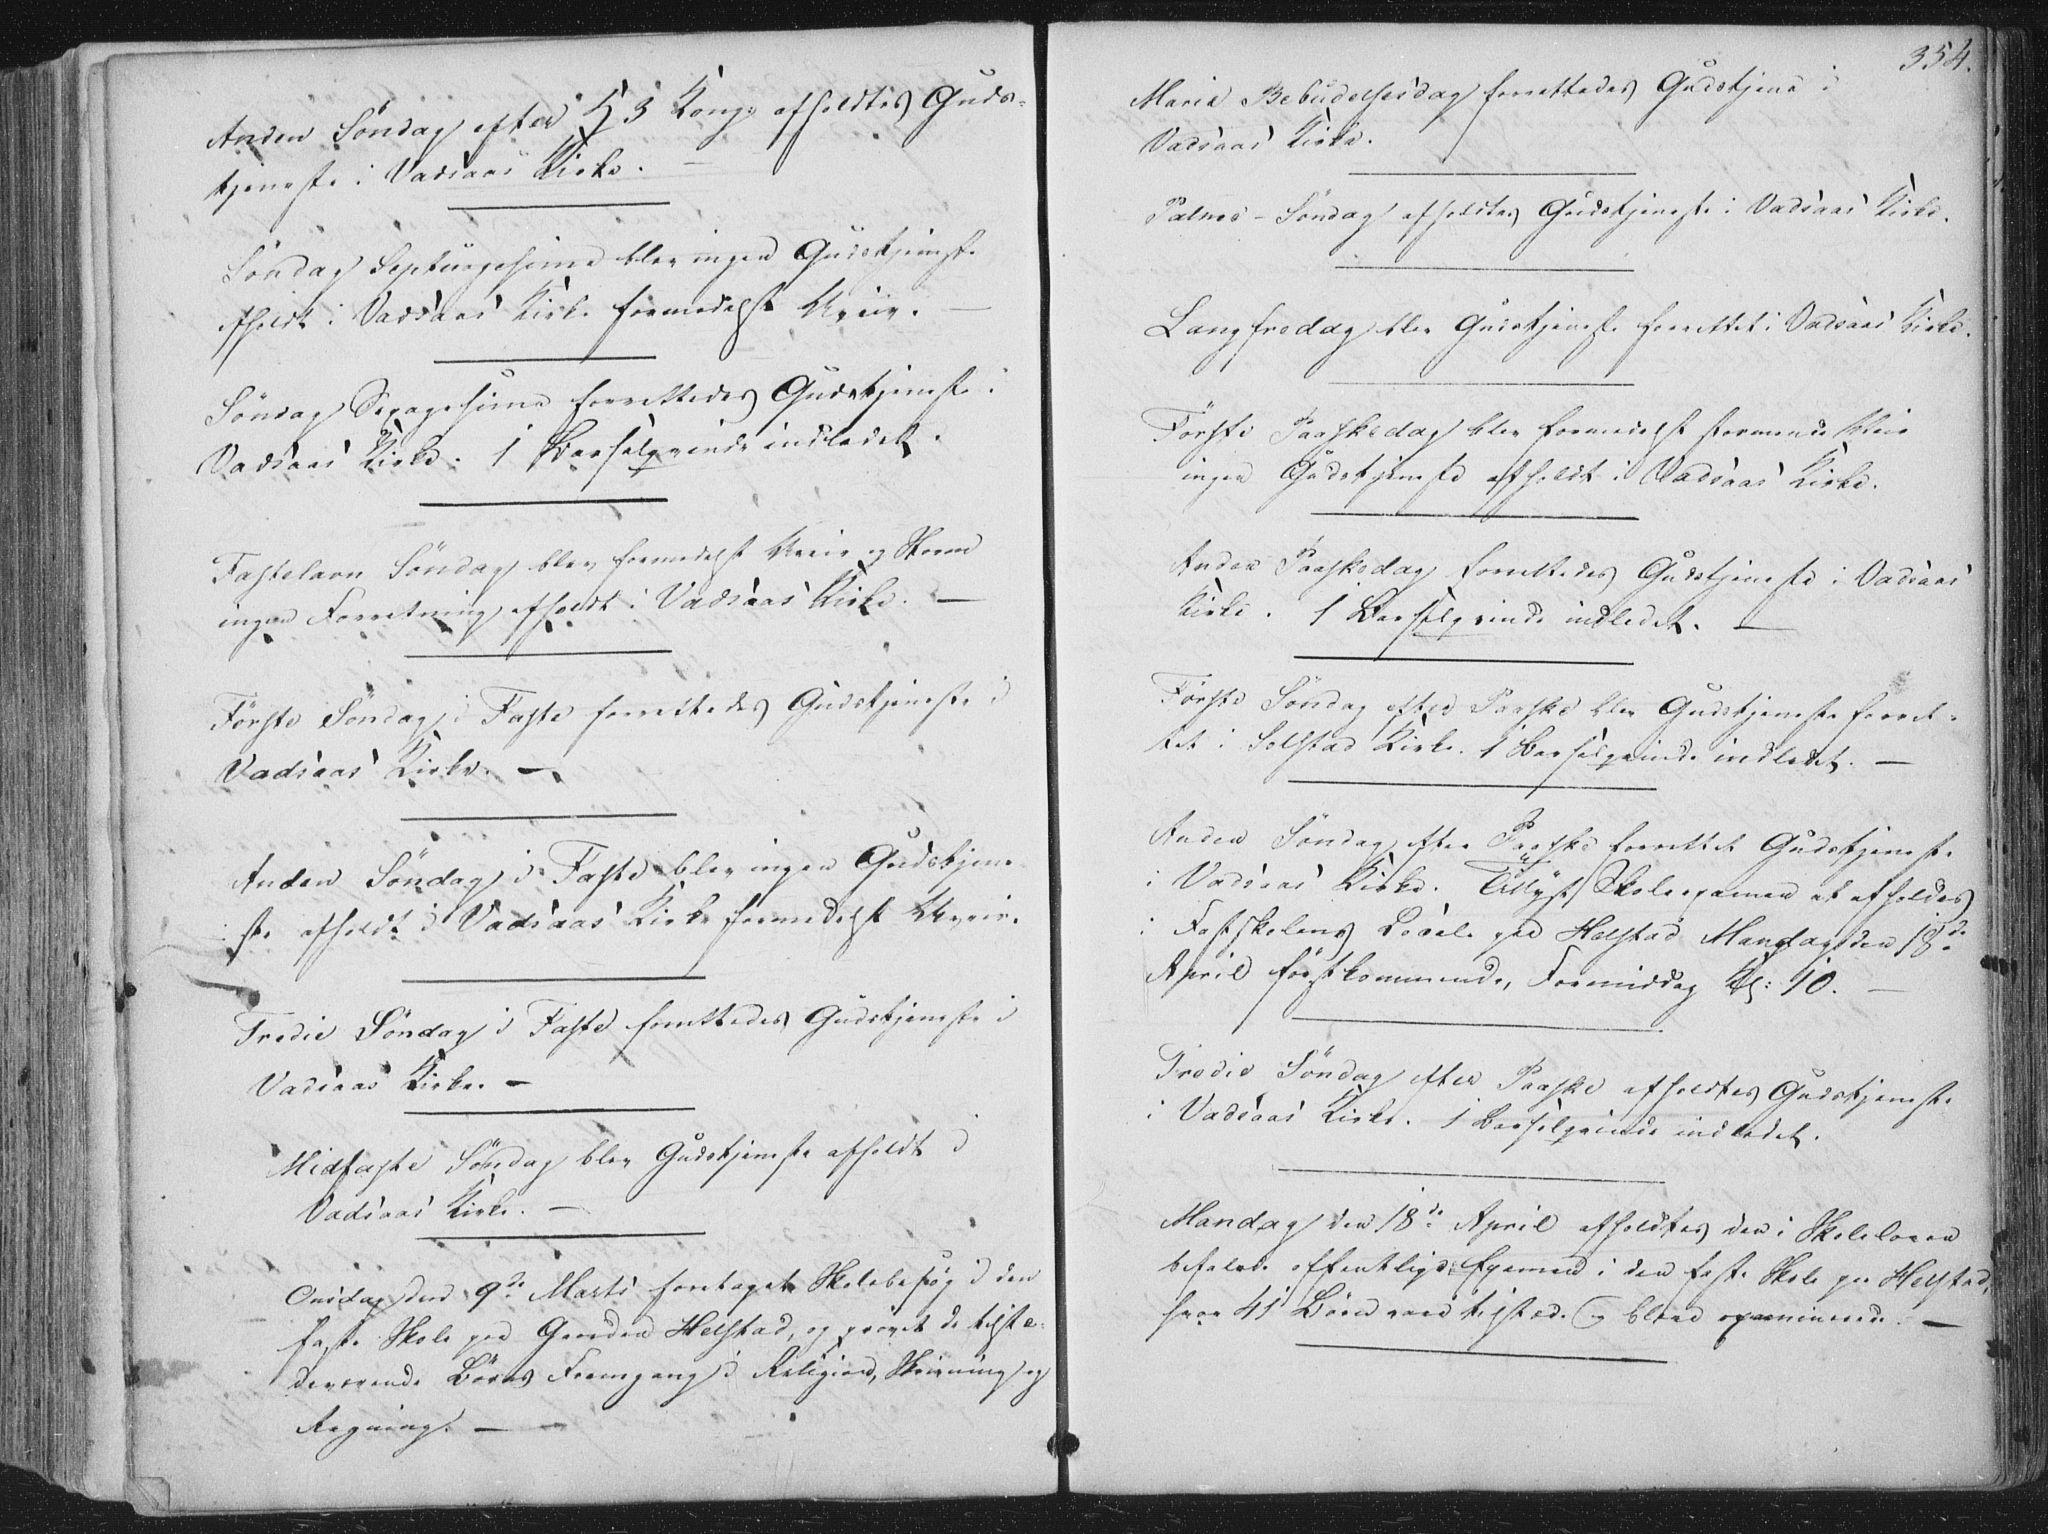 Anden Söndag efter H 3 Kong: afholdtes Guds-
tjeneste i Vadsaas Kirke. —
Söndag Septuagesima blev ingen Gudstjeneste
afholdt i Vadsaas Kirke formedelst Uveir. —
Söndag Sexagesima forrettedes Gudstjeneste i
Vadsaas Kirke. 1 Barselqvinde indledet.
Fastelavn Söndag blev formedelst Uveir og Storm
ingen Forretning afholdt i Vadsaas Kirke. —
Förste Söndag i Faste forrettedes Gudstjeneste i
Vadsaas Kirke. —
Anden Söndag i Faste blev ingen Gudstjene-
ste afholdt i Vadsaas Kirke formedelst Uveir.
Tredie Söndag i Faste forrettedes Gudstjeneste i
Vadsaas Kirke. —
Midfaste Söndag blev Gudstjeneste afholdt i
Vadsaas Kirke. —
Onsdag den 9de Marts foretaget Skolebesøg i den
faste Skole paa Gaarden Helstad, og prövet de tilste-
deværende Börns Fremgang i Religion, Skrivning og
Regning. —
354.
Mariæ Bebudelsesdag forrettedes Gudstjene i
Vadsaas Kirke.
Palme-Söndag afholdtes Gudstjeneste i Vadsaas Kirke.
Langfredag blev Gudstjeneste forrettet i Vadsaas Kirke.
Förste Paaskedag blev formedelst stormende Veir
ingen Gudstjeneste afholdt i Vadsaas Kirke.
Anden Paaskedag forrettedes Gudstjeneste i Vadsaas
Kirke. 1 Barselqvinde indledet. —
Förste Söndag efter Paaske blev Gudstjeneste forret-
tet i Solstad Kirke. 1 Barselqvinde indledet. —
Anden Söndag efter Paaske forrettet Gudstjeneste
i Vadsaas Kirke. Tillyst Skoleexamen at afholdes
i Fastskolens Locale paa Helstad Mandag den 18de
April förstkommende, Formiddag Kl: 10. —
Tredie Söndag efter Paaske afholdtes Gudstjeneste
i Vadsaas Kirke. 1 Barselqvinde indledet.
Mandag den 18de April afholdtes den i Skoleloven
befalede offentlige Examen i den faste Skole paa Helstad,
hvor 41 Börn vare tilstede og bleve examinerede. —